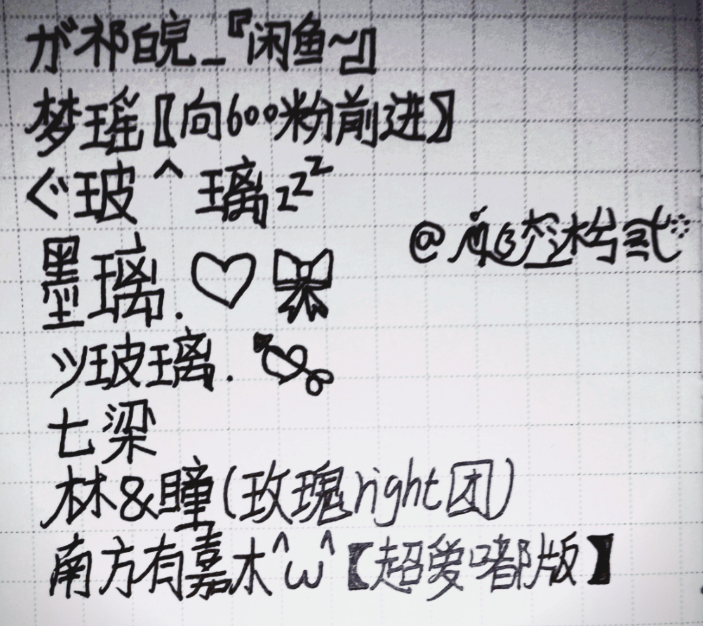 が祁皖_『闲鱼~』
梦瑶〖向600粉前进〗
ぐ玻^璃zzz
@
墨璃.♡
ツ玻璃.
七梁
林&瞳(玫瑰right团)
南方有嘉木^ω^【超爱嘟版】